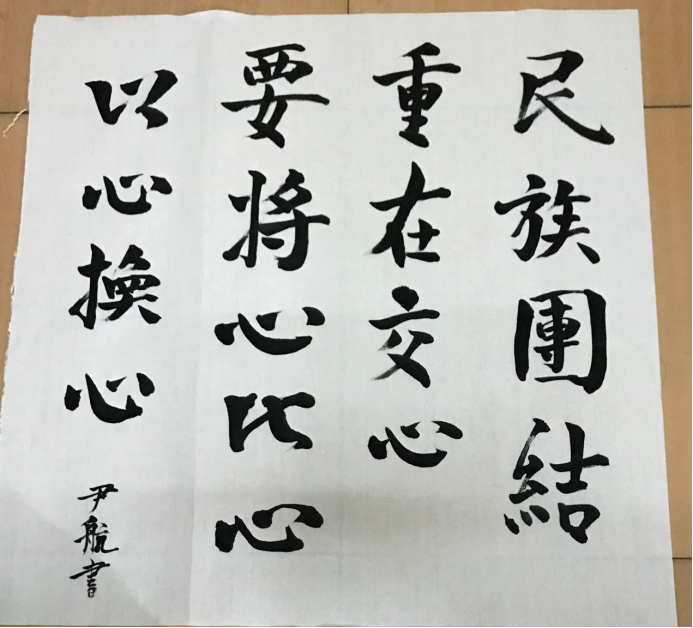 民族團結
重在交心
要将心比心
以心換心
尹航書